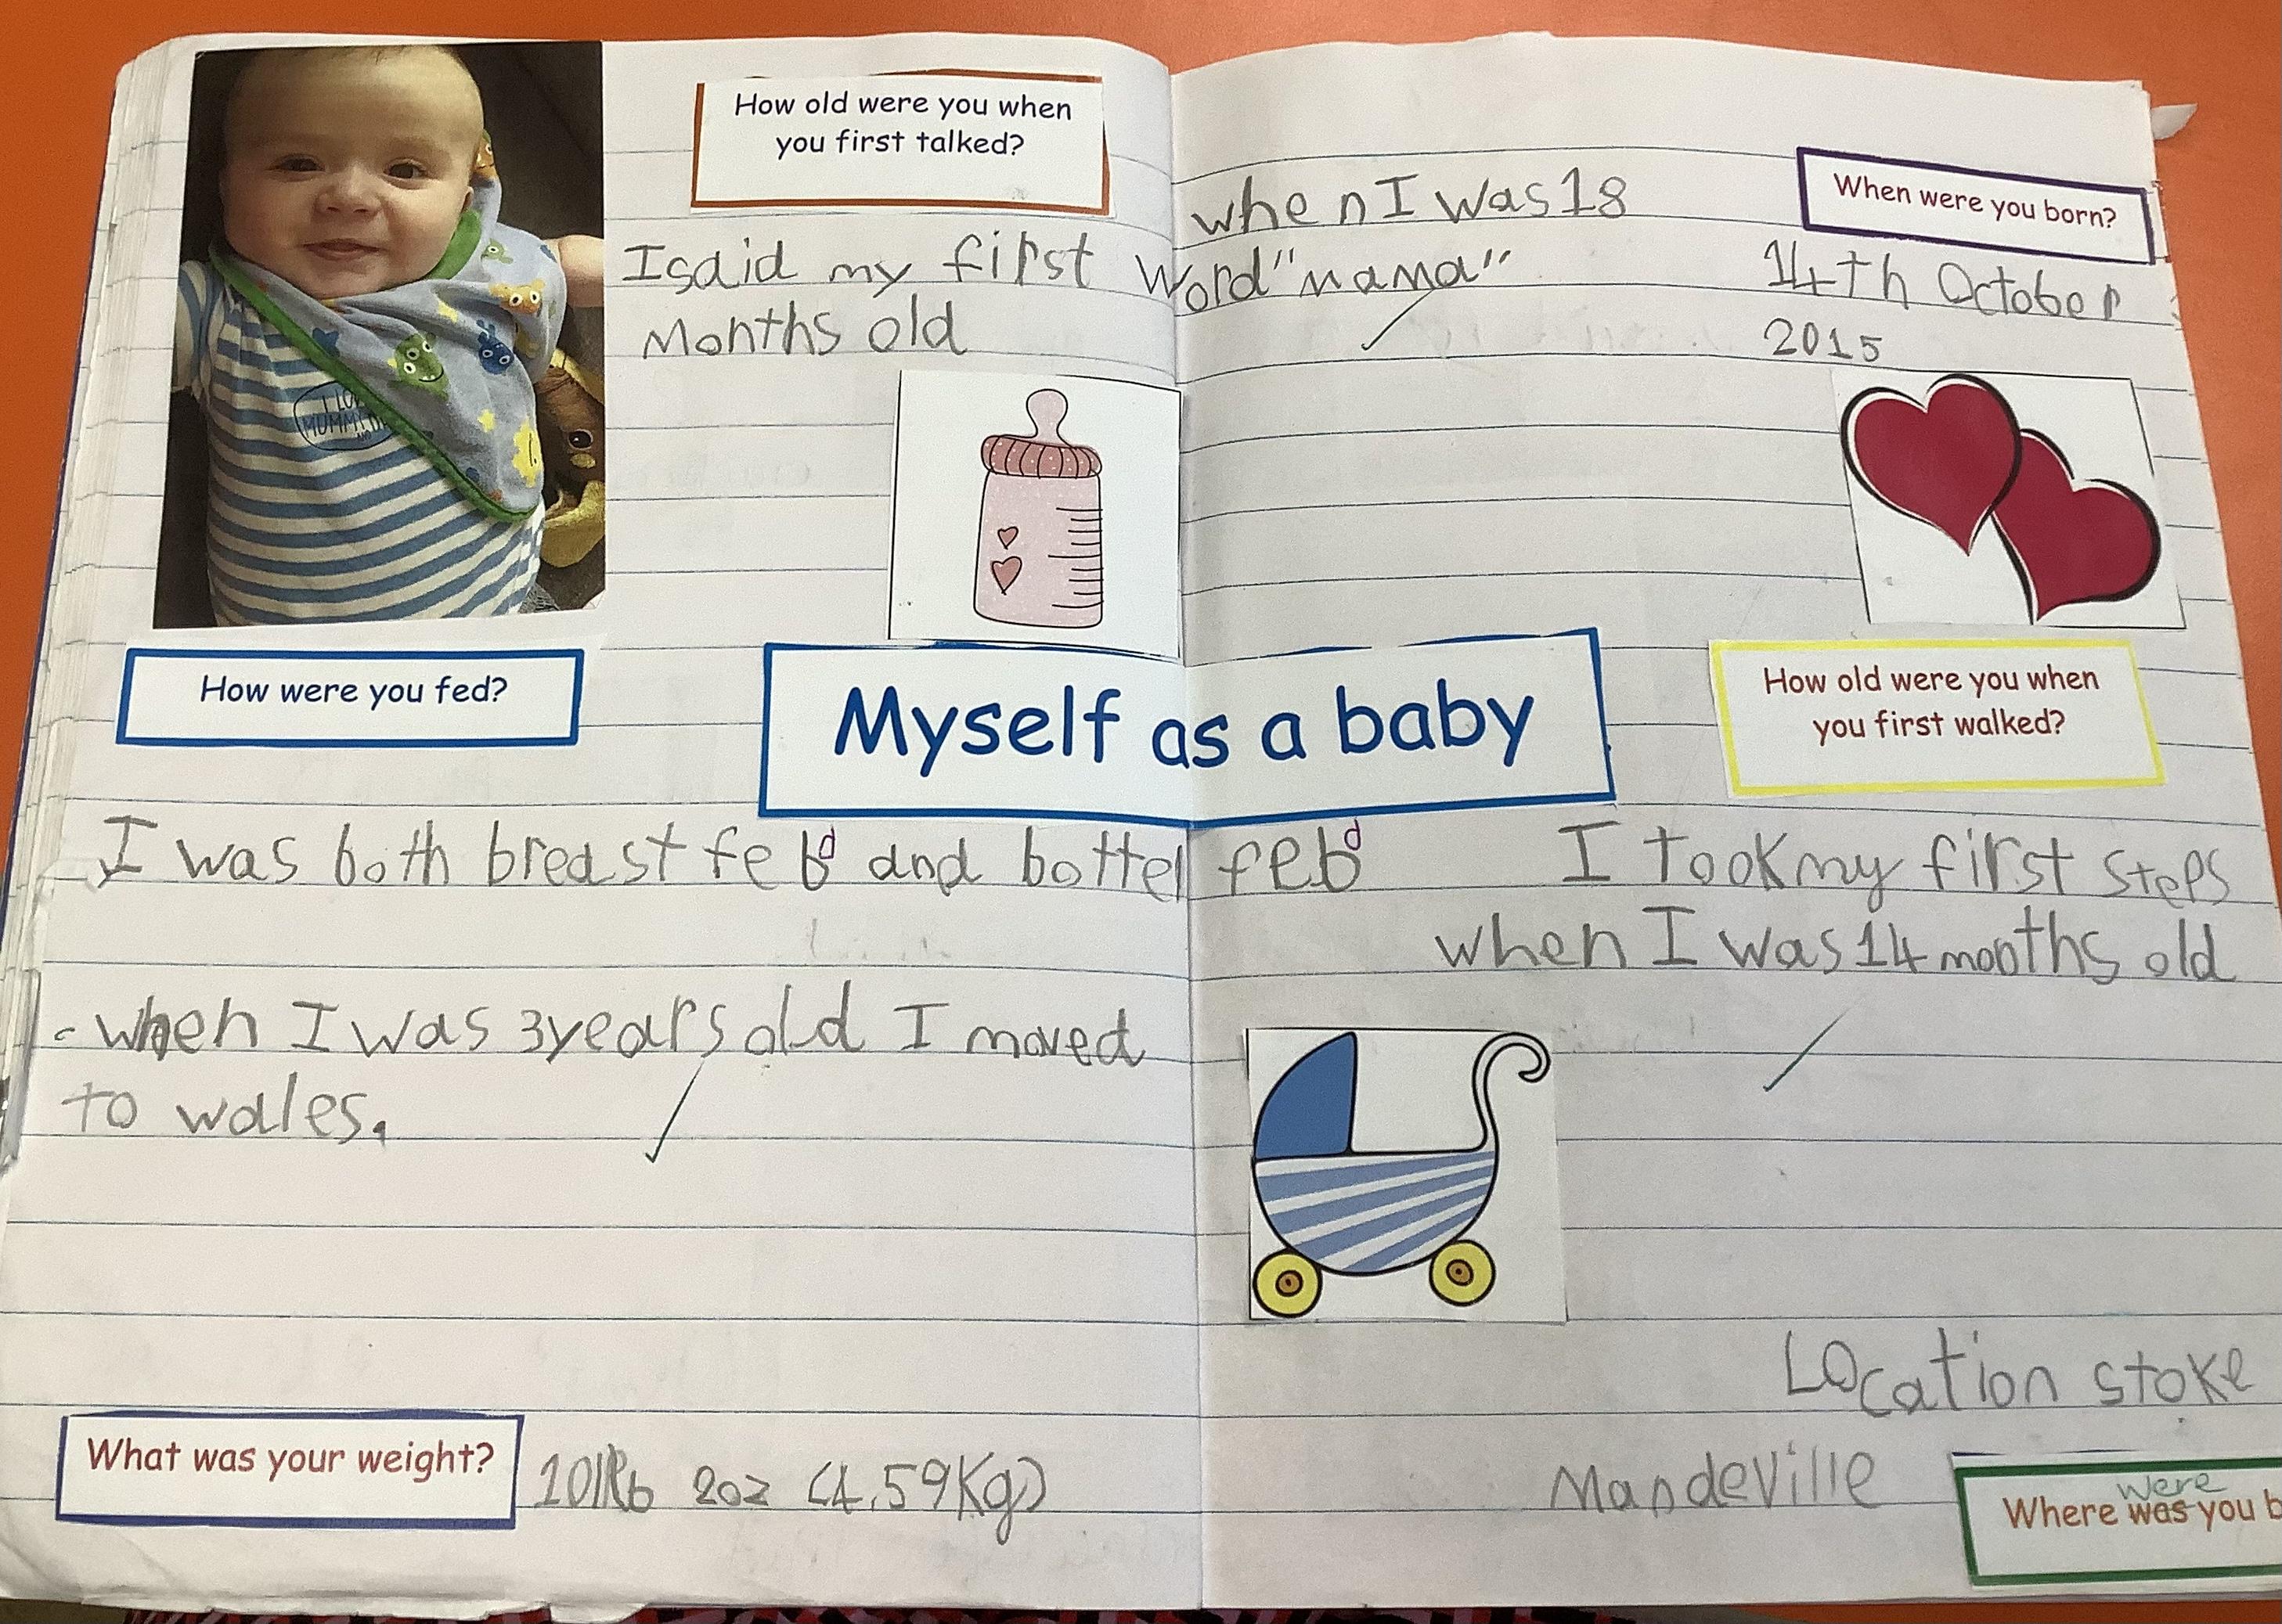 How old were you when
you first talked?
when I was 18
When were you born?
I said my first word "mama"
Months old
14th October
2015
I LOVE
MUMMY
AND
How were you fed?
Myself as a baby
How old were you when
you first walked?
I was both breast feb d and bottel feb d
I took my first steps
when I was 14 months old
when I was 3 years old I moved
to wales.
Location stoke
Mandeville
What was your weight?
10lb 2oz (4.59Kg)
were
Where was you b